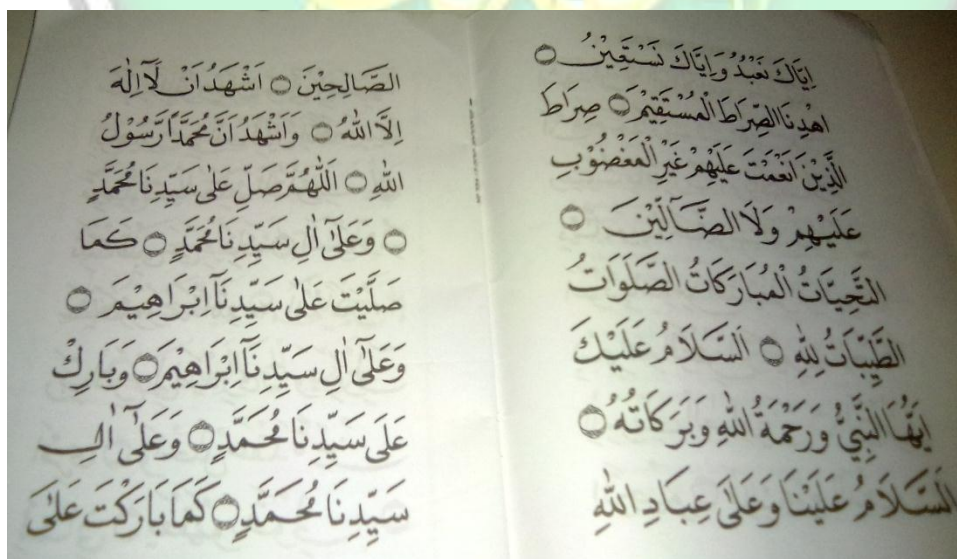 اِيَّاكَ نَعْبُدُ وَاِيَّاكَ نَسْتَعِيْنُ ۝
اهْدِنَا الصِّرَاطَ الْمُسْتَقِيْمَ ۝ صِرَاطَ
الَّذِيْنَ اَنْعَمْتَ عَلَيْهِمْ غَيْرِ الْمَغْضُوْبِ
عَلَيْهِمْ وَلَا الضَّآلِّيْنَ ۝
التَّحِيَّاتُ الْمُبَارَكَاتُ الصَّلَوَاتُ
الطَّيِّبَاتُ لِلّٰهِ ۝ اَلسَّلَامُ عَلَيْكَ
اَيُّهَا النَّبِيُّ وَرَحْمَةُ اللّٰهِ وَبَرَكَاتُهُ ۝
اَلسَّلَامُ عَلَيْنَا وَعَلٰى عِبَادِ اللّٰهِ
الصَّالِحِيْنَ ۝ اَشْهَدُ اَنْ لَآ اِلٰهَ
اِلَّا اللّٰهُ ۝ وَاَشْهَدُ اَنَّ مُحَمَّدًا رَّسُوْلُ
اللّٰهِ ۝ اَللّٰهُمَّ صَلِّ عَلٰى سَيِّدِنَا مُحَمَّدٍ
۝ وَعَلٰٓى اٰلِ سَيِّدِنَا مُحَمَّدٍ ۝ كَمَا
صَلَّيْتَ عَلٰى سَيِّدِنَآ اِبْرَاهِيْمَ ۝
وَعَلٰٓى اٰلِ سَيِّدِنَآ اِبْرَاهِيْمَ ۝ وَبَارِكْ
عَلٰى سَيِّدِنَا مُحَمَّدٍ ۝ وَعَلٰٓى اٰلِ
سَيِّدِنَا مُحَمَّدٍ ۝ كَمَا بَارَكْتَ عَلٰى